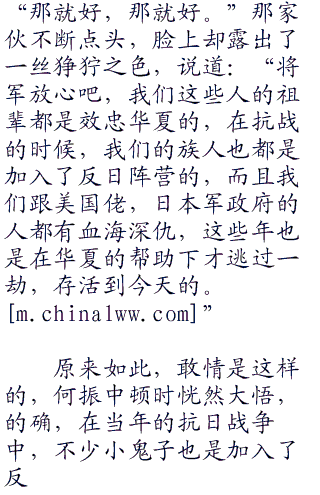 “那就好，那就好。”那家
伙不断点头，脸上却露出了
一丝狰狞之色，说道：“将
军放心吧，我们这些人的祖
辈都是效忠华夏的，在抗战
的时候，我们的族人也都是
加入了反日阵营的，而且我
们跟美国佬，日本军政府的
人都有血海深仇，这些年也
是在华夏的帮助下才逃过一
劫，存活到今天的。
[m.china1ww.com]”
原来如此，敢情是这样
的，何振中顿时恍然大悟，
的确，在当年的抗日战争
中，不少小鬼子也是加入了
反